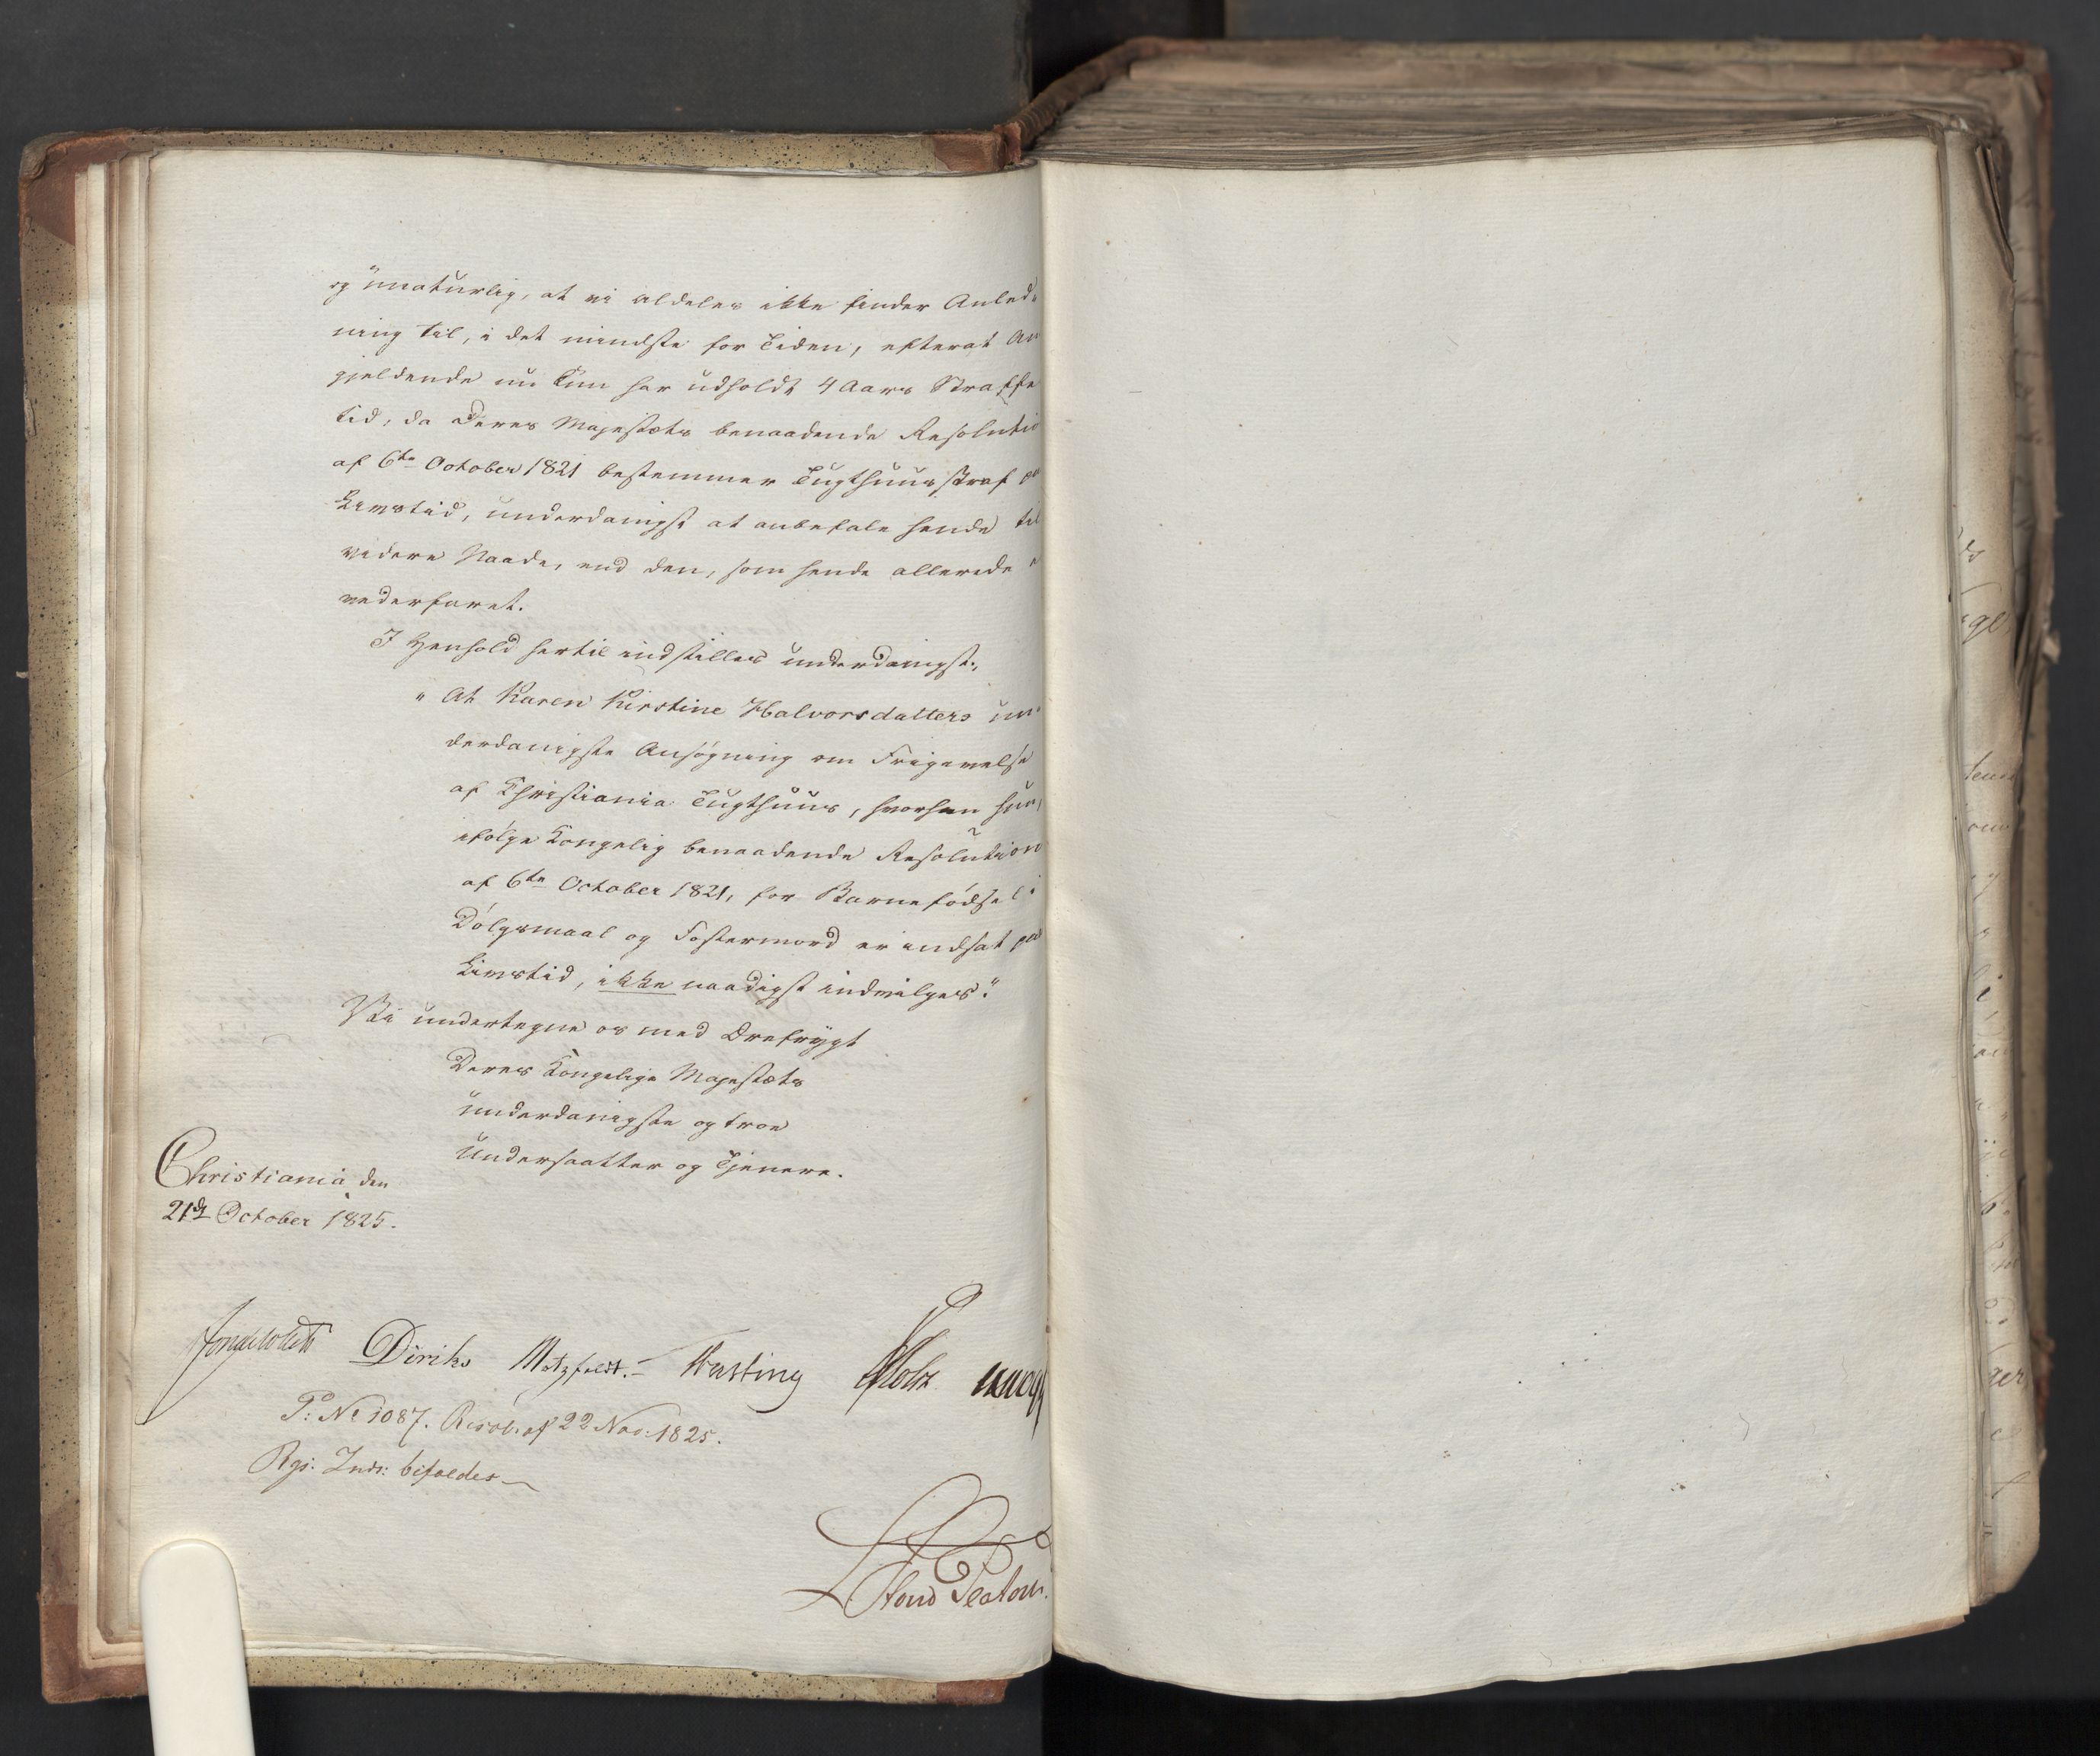 og unaturlig, at vi aldeles ikke finder Anled-
ning til, i det mindste for Tiden, efterat An
gjeldende nu kun har udholdt 4 Aars Straffe
tid, da Deres Majestæts benaadende Resolutio
af 6te October 1821 bestemmer Tugthuusstraf paa
Livstid, underdanigst at anbefale hende til
videre Naade, end den, som hende allerede er
vederfaret.
I Henhold hertil indstilles underdanigst:
" At Karen Kirstine Halvorsdatters un-
derdanigste Ansøgning om Frigivelse
af Christiania Tugthuus, hvorhen hun,
ifølge Kongelig benaadende Resolution
af 6te October 1821, for Barnefødsel i
Dølgsmaal og Fostermord er indsat paa
Livstid, ikke naadigst indvilges."
Vi undertegne os med Ærefrygt
Deres Kongelige Majestæts
underdanigste og troe
Undersaatter og Tjenere.
Christiania den
21de October 1825.
Diriks Motzfeldt. Fasting Holst
P: No 1087. Resol: af 22 Nov: 1825.
Rgs: Inds: bifaldes